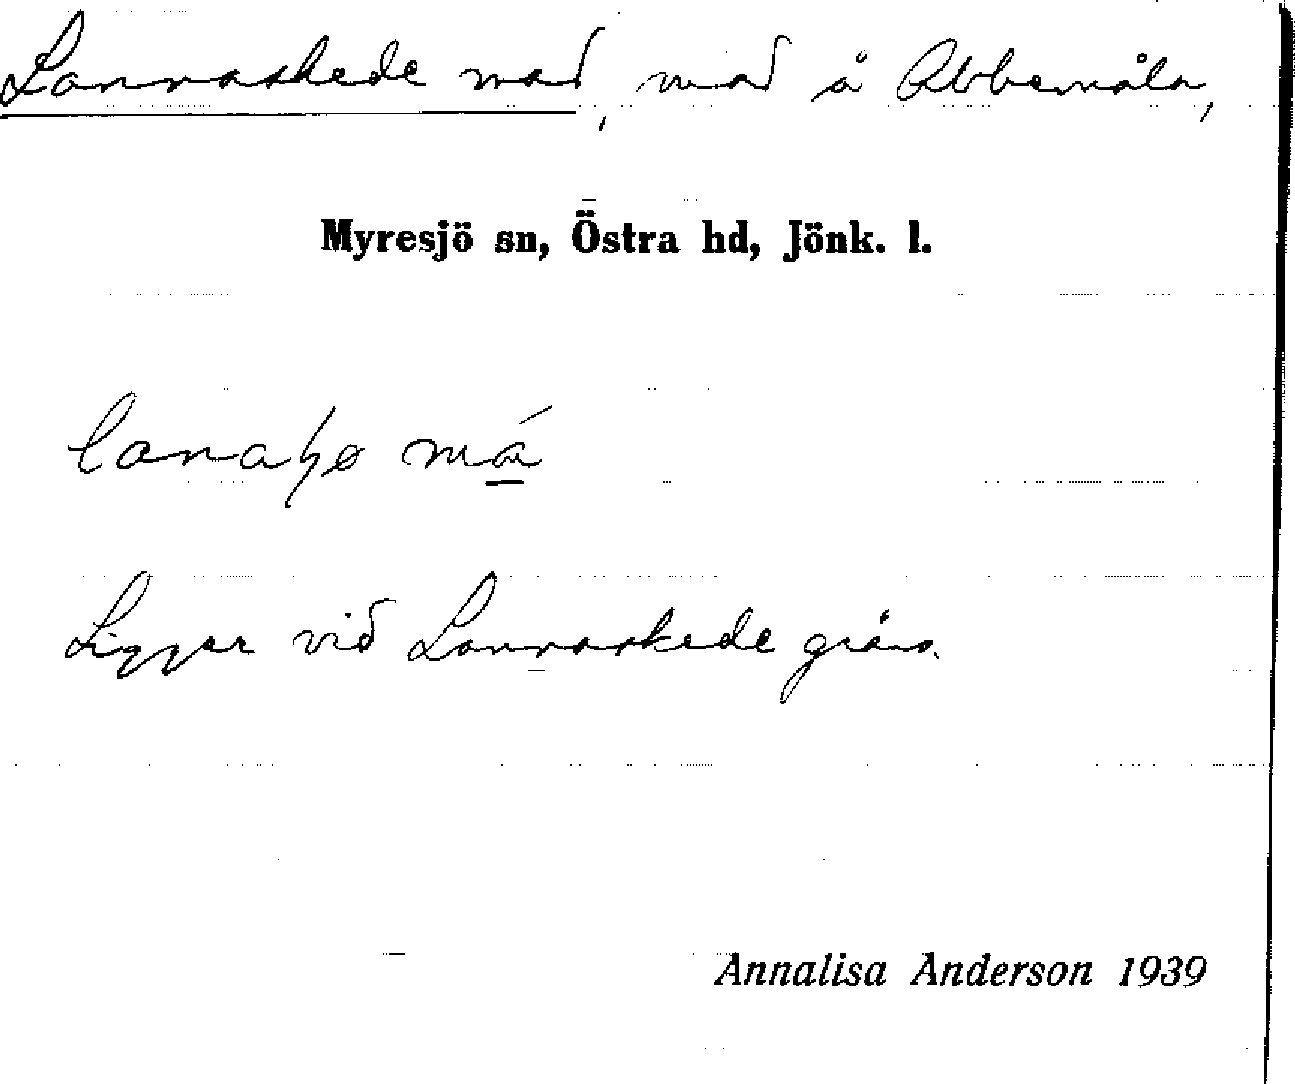 Lannaskede mad, mad å Abbemåla,
Myresjö sn, Östra hd, Jönk. l.
má
Ligger vid Lannaskede gräns.
Annalisa Anderson 1939